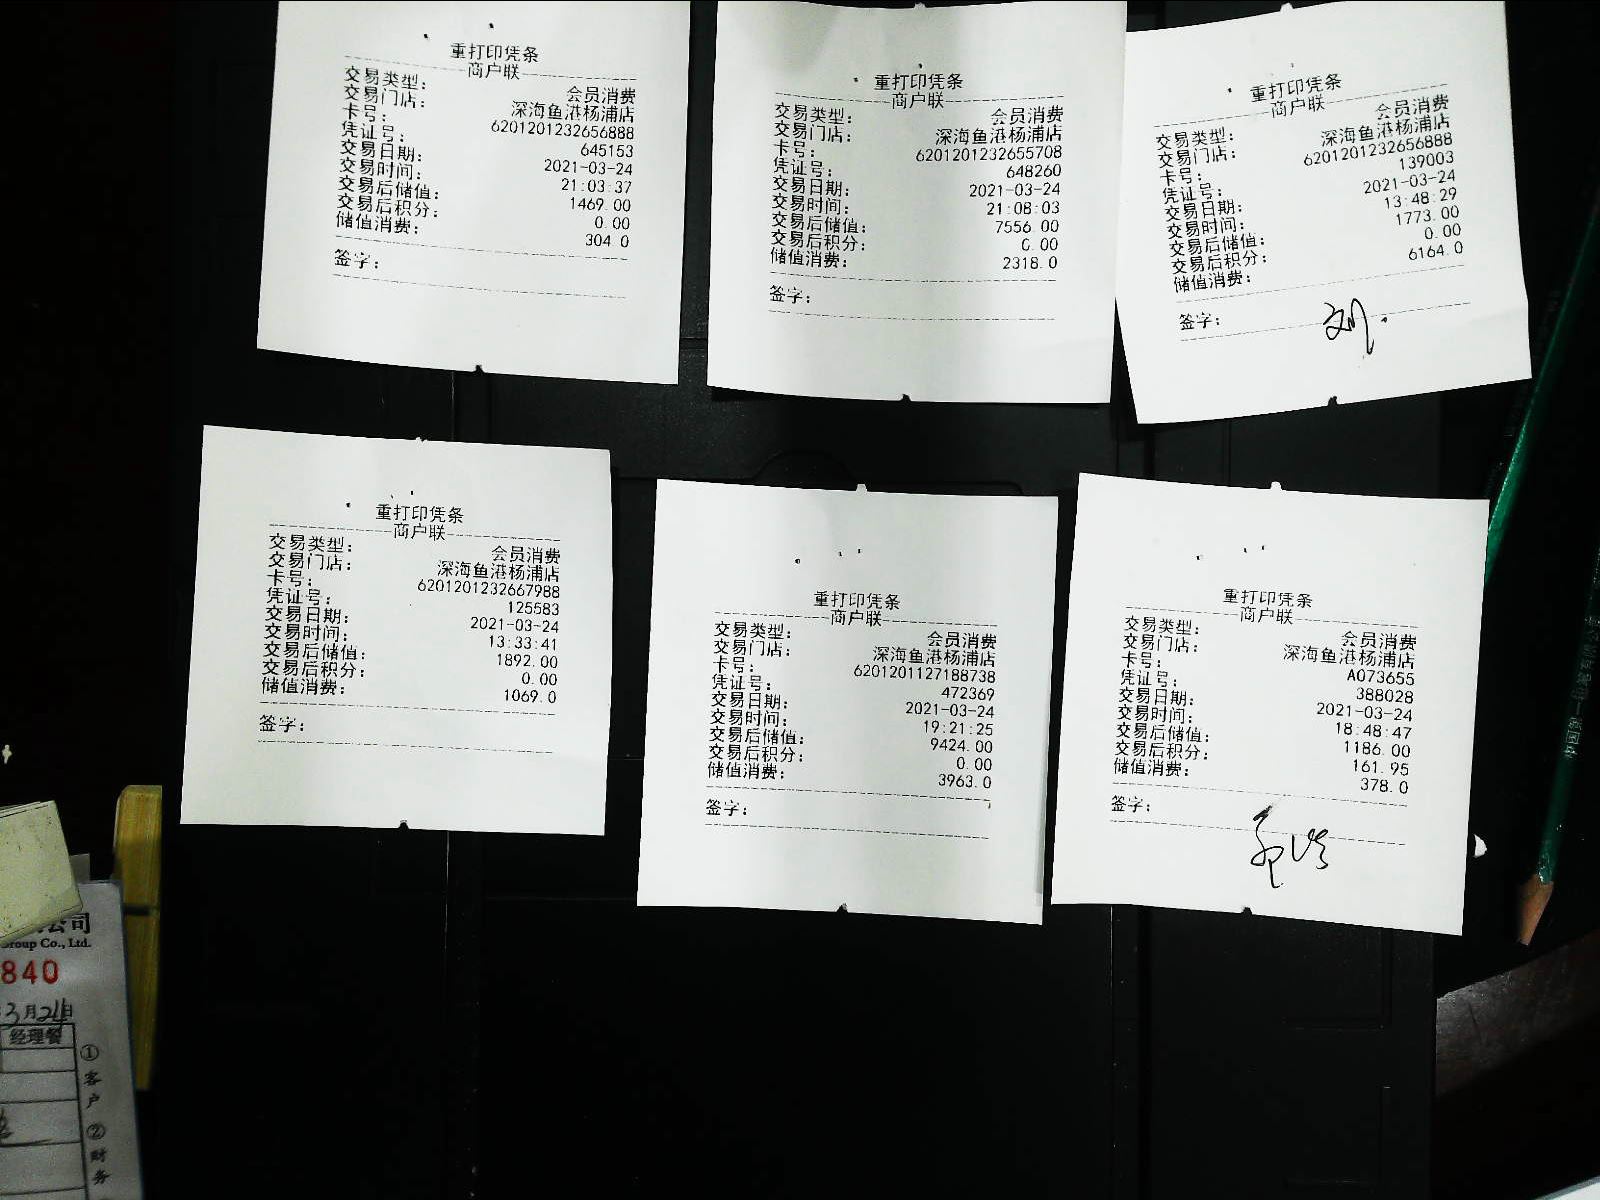 重打印凭条
商户联
交易类型： 会员消费
交易门店： 深海鱼港杨浦店
卡号： 6201201232656888
凭证号： 645153
交易日期： 2021-03-24
交易时间： 21:03:37
交易后储值： 1469.00
交易后积分： 0.00
储值消费： 304.0
签字：
重打印凭条
商户联
交易类型： 会员消费
交易门店： 深海鱼港杨浦店
卡号： 6201201232655708
凭证号： 648260
交易日期： 2021-03-24
交易时间： 21:08:03
交易后储值： 7556.00
交易后积分： 0.00
储值消费： 2318.0
签字：
重打印凭条
商户联
交易类型： 会员消费
交易门店： 深海鱼港杨浦店
卡号： 6201201232656888
凭证号： 139003
交易日期： 2021-03-24
交易时间： 13:48:29
交易后储值： 1773.00
交易后积分： 0.00
储值消费： 6164.0
签字：
重打印凭条
商户联
交易类型： 会员消费
交易门店： 深海鱼港杨浦店
卡号： 6201201232667988
凭证号： 125583
交易日期： 2021-03-24
交易时间： 13:33:41
交易后储值： 1892.00
交易后积分： 0.00
储值消费： 1069.0
签字：
重打印凭条
商户联
交易类型： 会员消费
交易门店： 深海鱼港杨浦店
卡号： 6201201127188738
凭证号： 472369
交易日期： 2021-03-24
交易时间： 19:21:25
交易后储值： 9424.00
交易后积分： 0.00
储值消费： 3963.0
签字：
重打印凭条
商户联
交易类型： 会员消费
交易门店： 深海鱼港杨浦店
卡号： A073655
凭证号： 388028
交易日期： 2021-03-24
交易时间： 18:48:47
交易后储值： 1186.00
交易后积分： 161.95
储值消费： 378.0
签字：
公司
Group Co., Ltd.
840
3月24日
经理餐
①客户
②财务